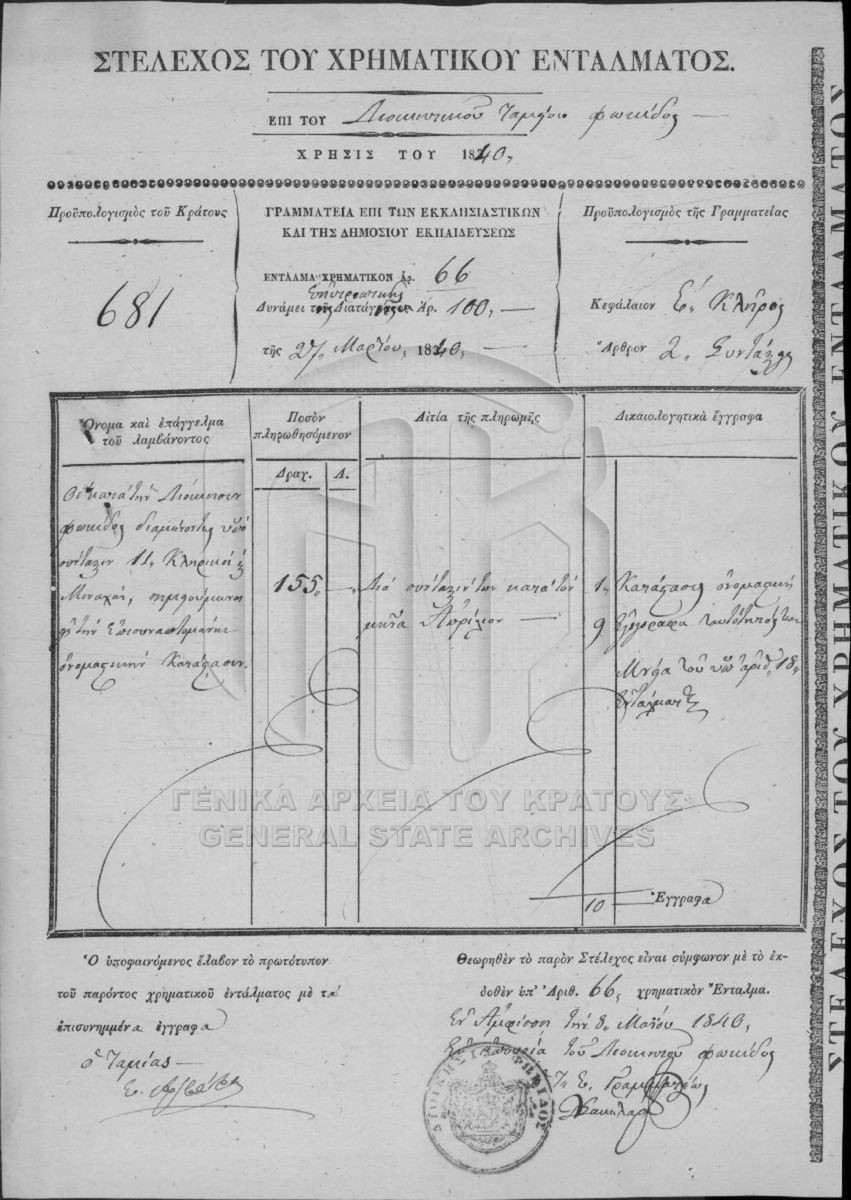 ΣΤΕΛΕΧΟΣ ΤΟΥ ΧΡΗΜΑΤΙΚΟΥ ΕΝΤΑΛΜΑΤΟΣ.
ΕΠΙ ΤΟΥ Διοικητικοῦ Ταμείου Φωκίδος
ΧΡΗΣΙΣ ΤΟΥ 1840,
Προϋπολογισμὸς τοῦ Κράτους
681
ΓΡΑΜΜΑΤΕΙΑ ΕΠΙ ΤΩΝ ΕΚΚΛΗΣΙΑΣΤΙΚΩΝ
ΚΑΙ ΤΗΣ ΔΗΜΟΣΙΟΥ ΕΚΠΑΙΔΕΥΣΕΩΣ
ΕΝΤΑΛΜΑ ΧΡΗΜΑΤΙΚΟΝ Ἀρ. 66
Δυνάμει τῆς Διαταγῆς Ἀρ. 100,
τῆς 27 Μαρτίου, 1840,
Προϋπολογισμὸς τῆς Γραμματείας
Κεφάλαιον Εʹ. Κλῆρος
Ἄρθρον 2. Συντάξεις
Ὄνομα καὶ ἐπάγγελμα
τοῦ λαμβάνοντος
Ποσὸν
πληρωθησόμενον
Δραχ. Λ.
Αἰτία τῆς πληρωμῆς
Δικαιολογητικὰ ἔγγραφα
Οἱ κατὰ τὴν Διοίκησιν
Φωκίδος διαμένοντες ὑπὸ
σύνταξιν 11 Κληρικοὶ ἢ
Μοναχοί, σημειούμενοι
εἰς τὴν ἐπισυναπτομένην
ὀνομαστικὴν Κατάστασιν.
155
Διὰ σύνταξίν των κατὰ τὸν
μῆνα Ἀπρίλιον
1, Κατάστασις ὀνομαστικὴ
9 Ἔγγραφα ταυτότητός των
Μετὰ τοῦ ὑπ' ἀριθ. 18
ἐντάλματος
10 Ἔγγραφα
Ὁ ὑποφαινόμενος ἔλαβον τὸ πρωτότυπον
τοῦ παρόντος χρηματικοῦ ἐντάλματος μὲ τὰ
ἐπισυνημμένα ἔγγραφα
ὁ Ταμίας
Θεωρηθὲν τὸ παρὸν Στέλεχος εἶναι σύμφωνον μὲ τὸ ἐκ-
δοθὲν ὑπ' Ἀριθ. 66, χρηματικὸν Ἔνταλμα.
Ἐν Ἀμφίσσῃ τὴν 8 Μαΐου 1840,
Ἐν ἀπουσίᾳ τοῦ Διοικητοῦ Φωκίδος
Ὁ Γραμματεὺς
ΔΙΟΙΚΗΣΙΣ ΦΩΚΙΔΟΣ
ΣΤΕΛΕΧΟΣ ΤΟΥ ΧΡΗΜΑΤΙΚΟΥ ΕΝΤΑΛΜΑΤΟΣ
ΓΕΝΙΚΑ ΑΡΧΕΙΑ ΤΟΥ ΚΡΑΤΟΥΣ
GENERAL STATE ARCHIVES